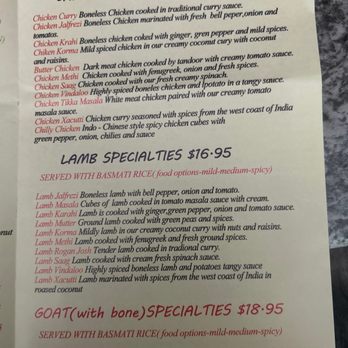 Chicken Curry Boneless Chicken cooked in traditional curry sauce.
Chicken Jalfrezi Boneless Chicken marinated with fresh bell peper,onion and
tomatos.
Chicken Krahi Boneless chicken coked with ginger, gren pepper and mild spices.
Chiken Korma Mild spiced chicken in our creamy coconut cury with coconut
and raisins.
Butter Chicken Dark meat chicken cooked by tandoor with creamy tomato sauce.
Chicken Methi Chicken cooked with fenugreek, onion and fresh spices.
Chicken Saag Chicken cooked with our fresh creamy spinach.
Chicken Vindaloo Highly spiced boneles chicken and Ipotato in a tangy sauce.
Chicken Tikka Masala White meat chicken paired with our creamy tomato
masala sauce.
Chicken Xacuti Chicken curry seasoned with spices from the west coast of India
Chilly Chicken Indo - Chinese style spicy chicken cubes with
green pepper, onion, chilies and sauce
LAMB SPECIALTIES $16.95
SERVED WITH BASMATI RICE( food options-mild-medium-spicy)
Lamb Jalfrezi Boneless lamb with bell pepper, onion and tomato.
Lamb Masala Cubes of lamb cooked in tomato masala sauce with cream.
Lamb Karahi Lamb is cooked with ginger,green pepper, onion and tomato sauce.
Lamb Mutter Ground lamb cooked with green peas and spices.
Lamb Korma Mildly lamb in our creamy coconut curry with nuts and raisins.
Lamb Methi Lamb cooked with fenugreek and fresh ground spices.
Lamb Rogan Josh Tender lamb cooked in tradional curry.
Lamb Saag Lamb cooked with cream fresh spinach sauce.
Lamb Vindaloo Highly spiced boneless lamb and potatoes tangy sauce
Lamb Xacutti Lamb marinated with spices from the west coast of India in
roased coconut
GOAT(with bone)SPECIALTIES $18.95
SERVED WITH BASMATI RICE( food options-mild-medium-spicy)